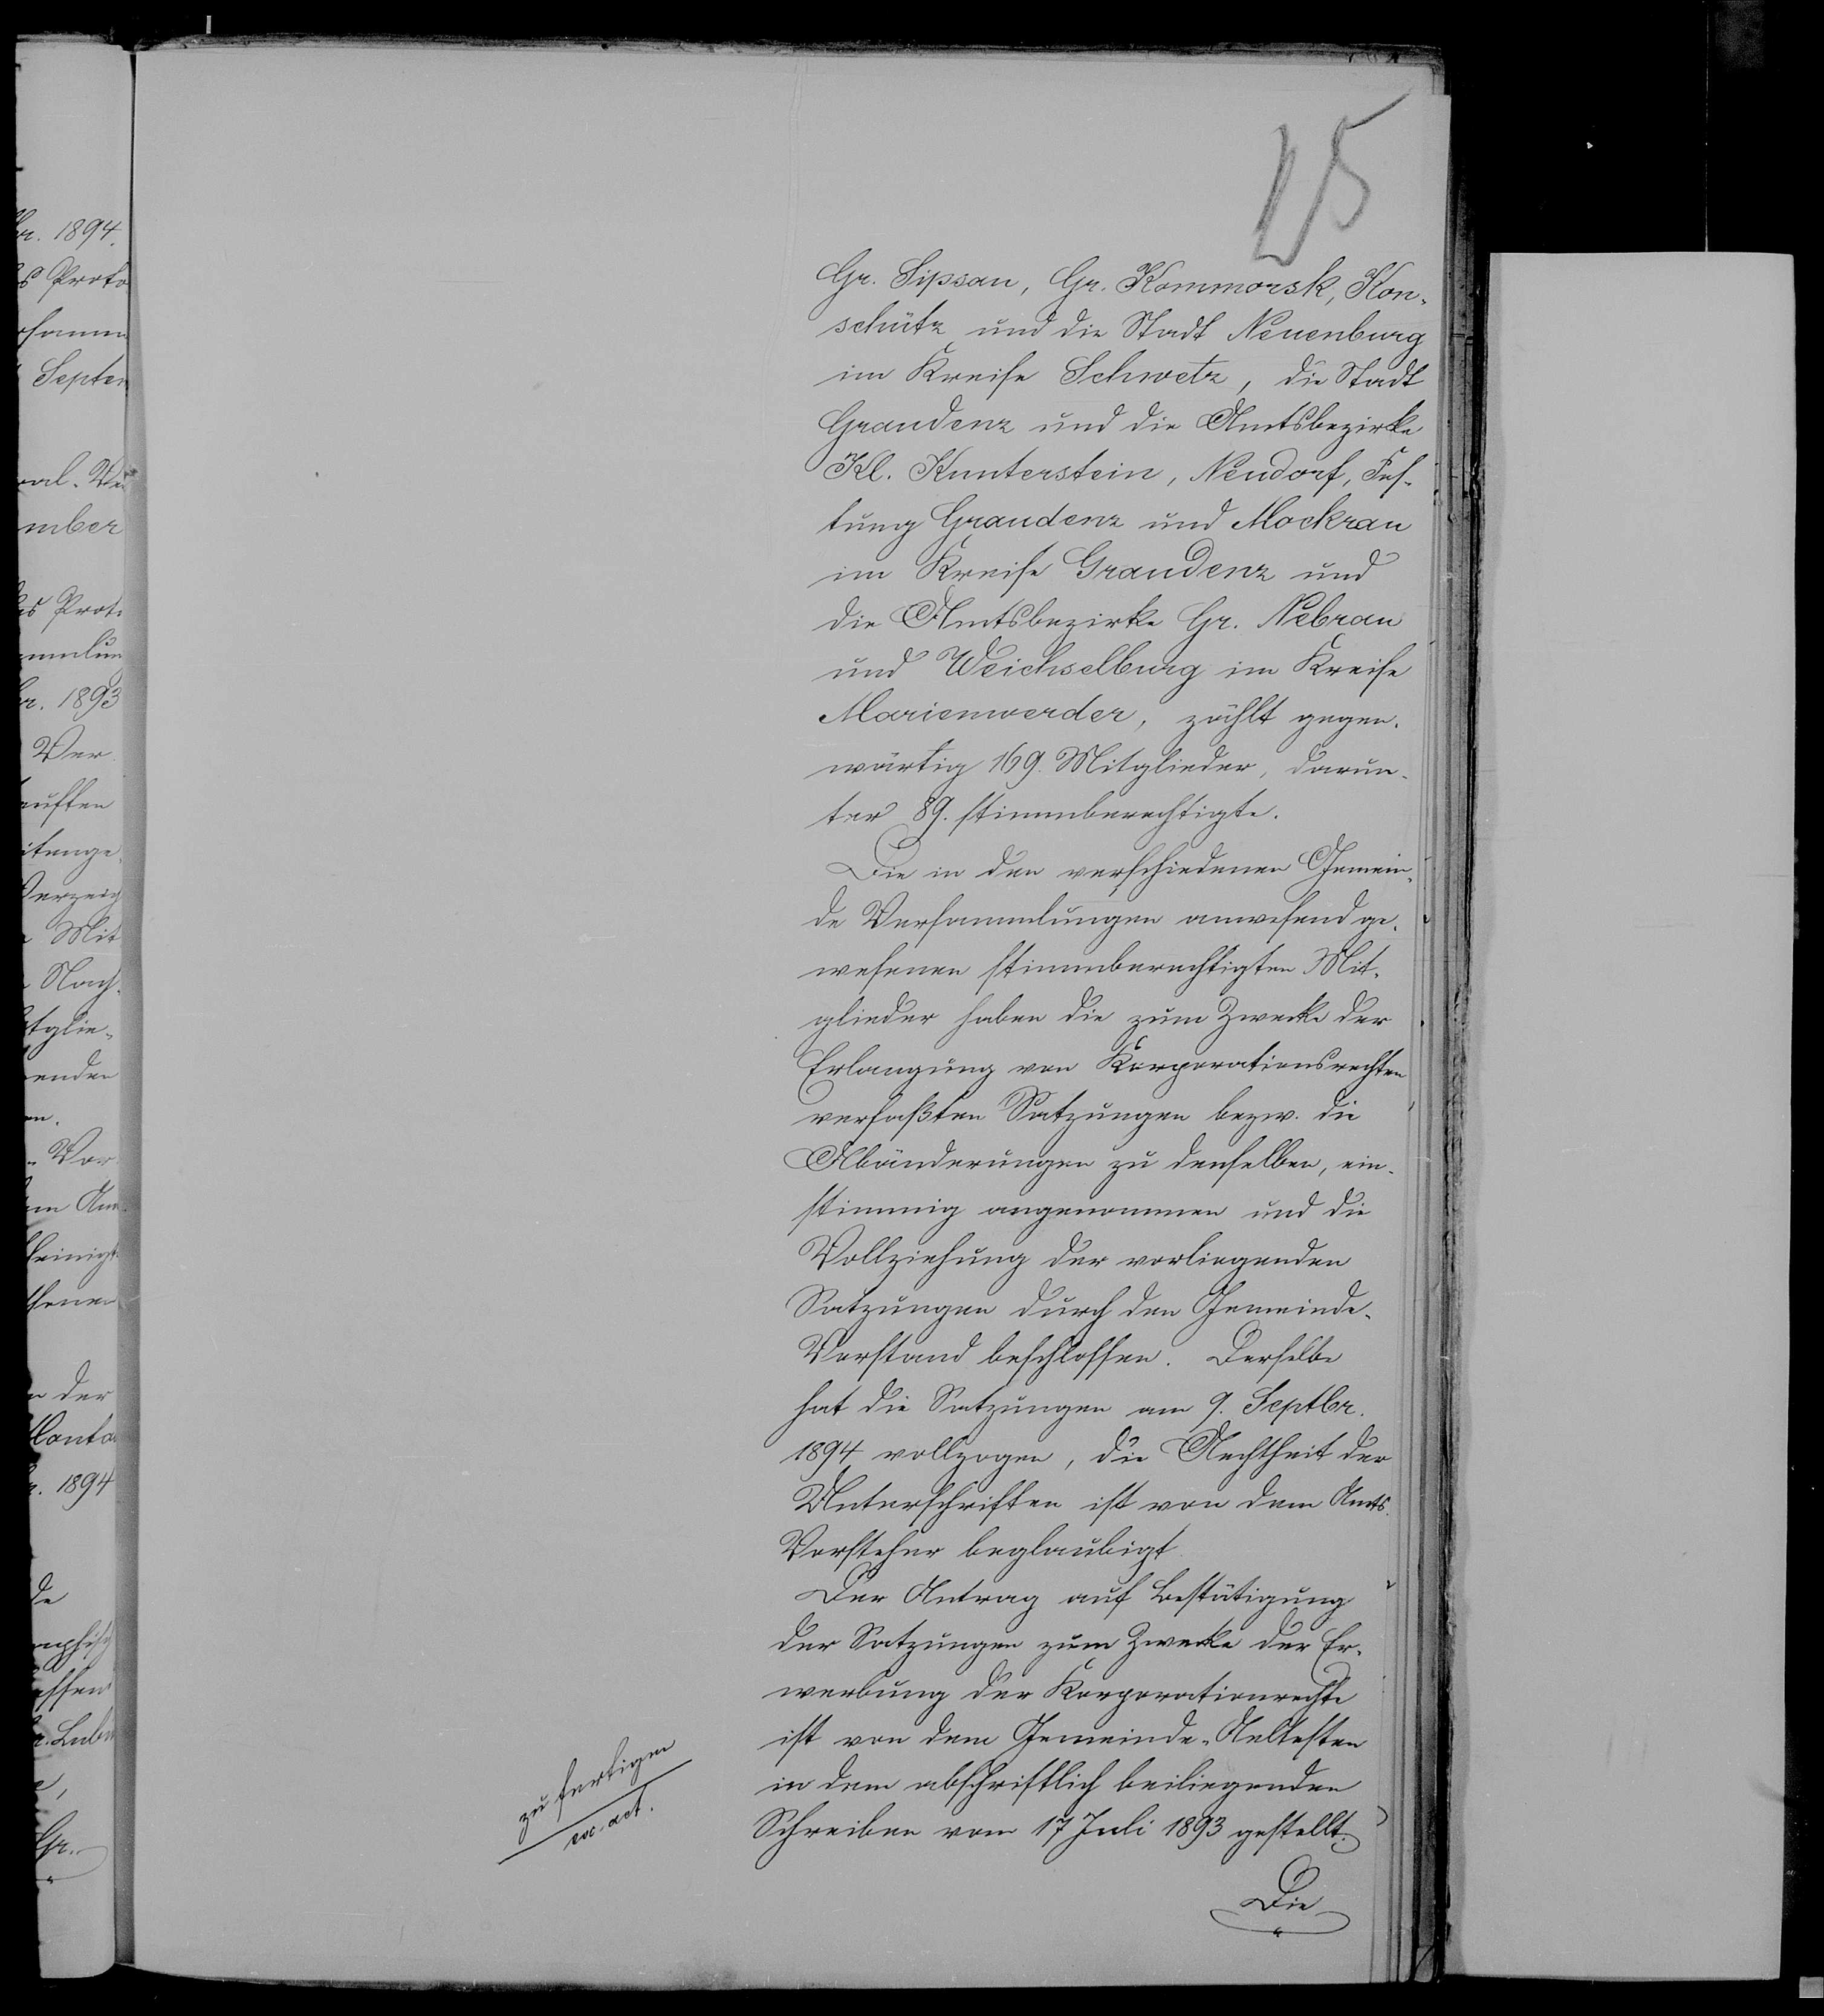 br. 1894.
s Proto
rsamm
Septem
ral-Ver
mber
es Prot.
mmlun
br. 1893
Ver
auften
itenge
Verzeich
Mit
Nach-
itglie-
enden
en.
Vor
em Am
heinigt
ssenen
n der
r. 1894
de
essen
r. Lubi
Gr.
15
Gr. Sipsau, Gr. Kommorsk, Kon-
schütz und die Stadt Neuenburg
im Kreise Schwetz, die Stadt
Graudenz und die Amtsbezirke
Kl. Kunterstein, Neudorf, Fes-
tung Graudenz und Mockrau
im Kreise Graudenz und
die Amtsbezirke Gr. Nebrau
und Weichselburg im Kreise
Marienwerder, zählt gegen-
wärtig 169. Mitglieder, darun-
ter 89. stimmberechtigte.
Die in den verschiedenen Gemein-
de Versammlungen anwesend ge-
wesenen stimmberechtigten Mit-
glieder haben die zum Zwecke der
Erlangung von Korporationsrechten
verfaßten Satzungen bezw. die
Abänderungen zu denselben, ein-
stimmig angenommen und die
Vollziehung der vorliegenden
Satzungen durch den Gemeinde-
Vorstand beschlossen. Derselbe
hat die Satzungen am 9. Septbr.
1894 vollzogen, die Aechtheit der
Unterschriften ist von dem Amts-
Vorsteher beglaubigt.
Der Antrag auf Bestätigung
der Satzungen zum Zwecke der Er-
werbung der Korporationrechte
ist von dem Gemeinde-Aeltesten
in dem abschriftlich beiliegenden
Schreiben vom 17 Juli 1893 gestellt.
Die
zu fertigen
ex. act.